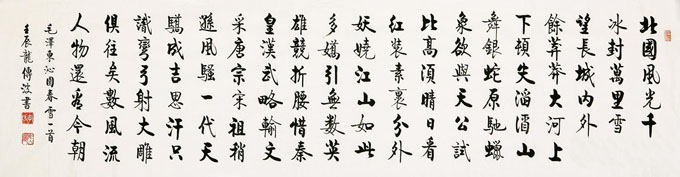 北國風光千
冰封萬里雪
望長城内外
餘莽莽大河上
下頓失滔滔山
舞銀蛇原馳蠟
象欲與天公試
比高須晴日看
紅裝素裹分外
妖嬈江山如此
多嬌引無數英
雄競折腰惜秦
皇漢武略輸文
采唐宗宋祖稍
遜風騷一代天
驕成吉思汗只
識彎弓射大雕
俱往矣數風流
人物還看今朝
毛澤東沁園春雪一首
壬辰龍傳政書